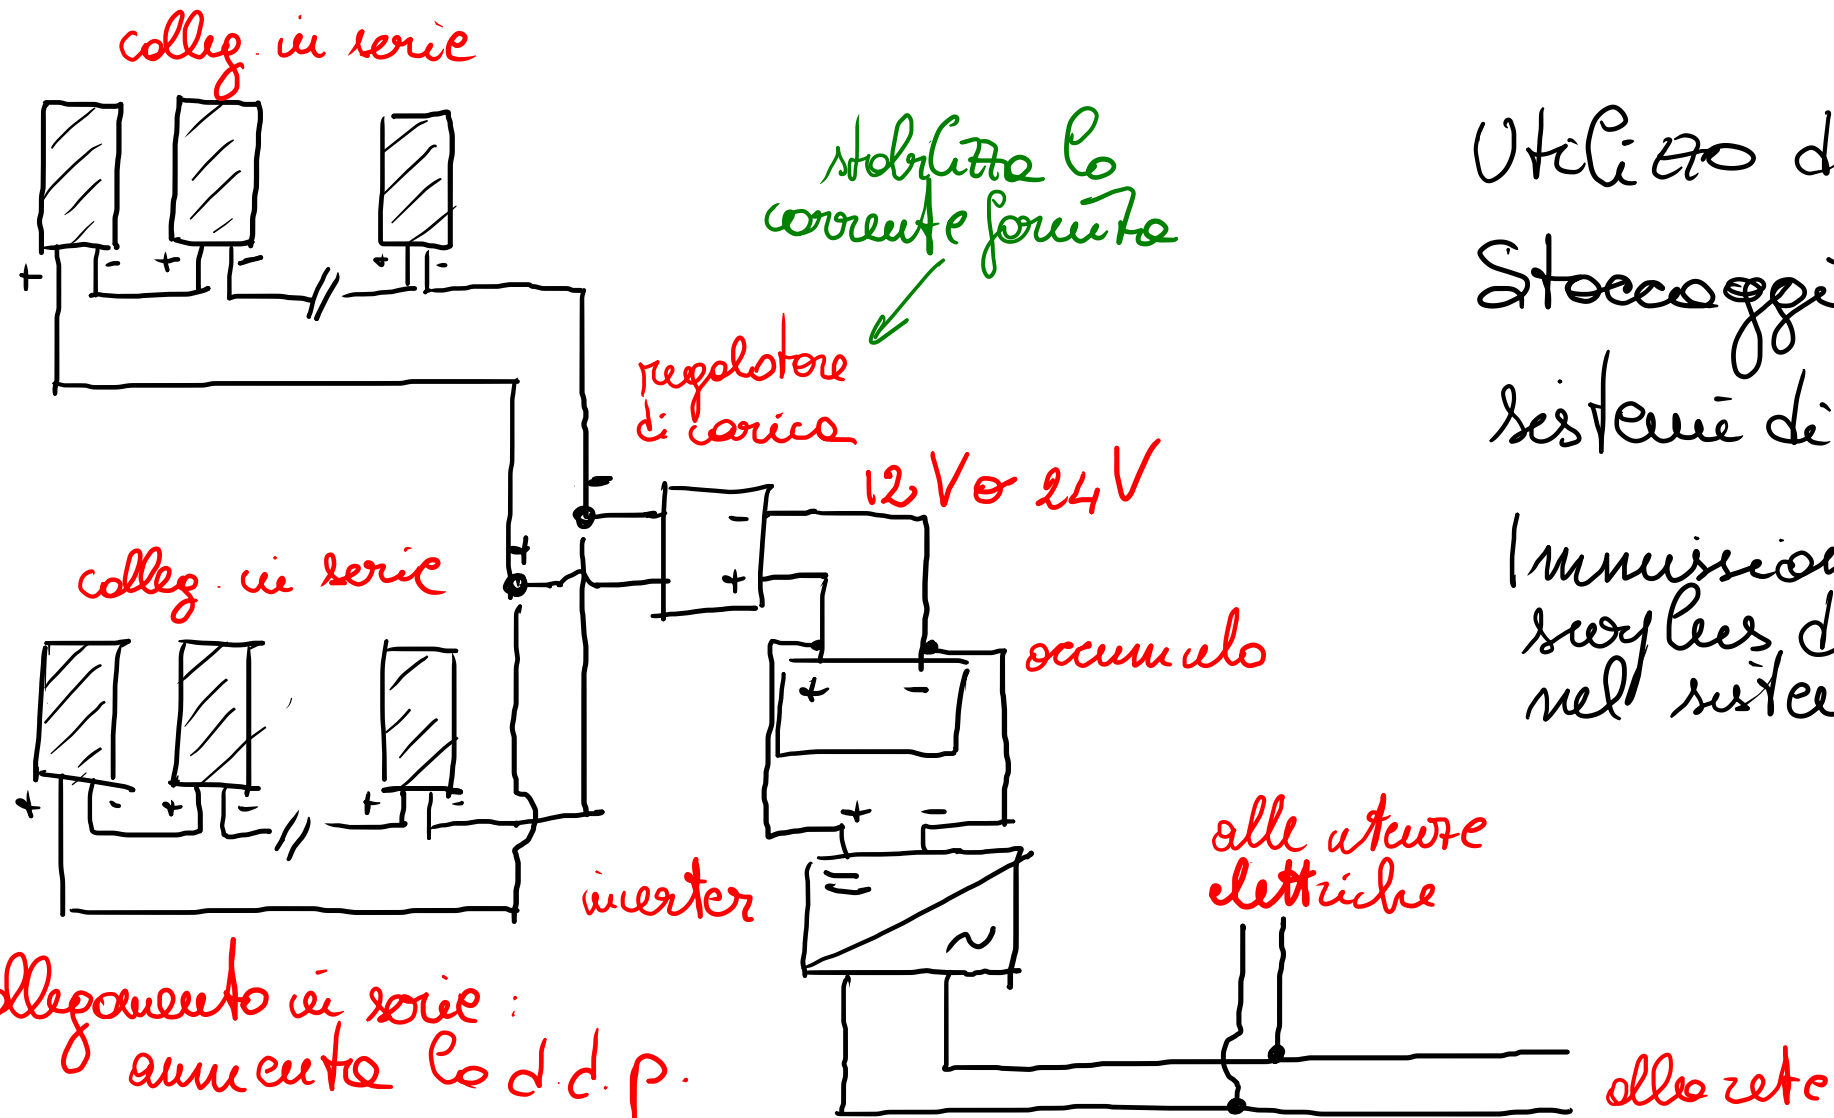 colleg. in serie
stabilizza la
corrente fornita
regolatore
di carica
12 V o 24 V
colleg. in serie
accumulo
inverter
alle utenze
elettriche
llegamento in serie:
aumenta la d.d.p.
alla rete
Utilizzo d
Stoccaggi
sistemi di
Immission
surplus d
nel sistem
+ - + - + -
-
+
-
+
+ -
+ - + - + -
+ -